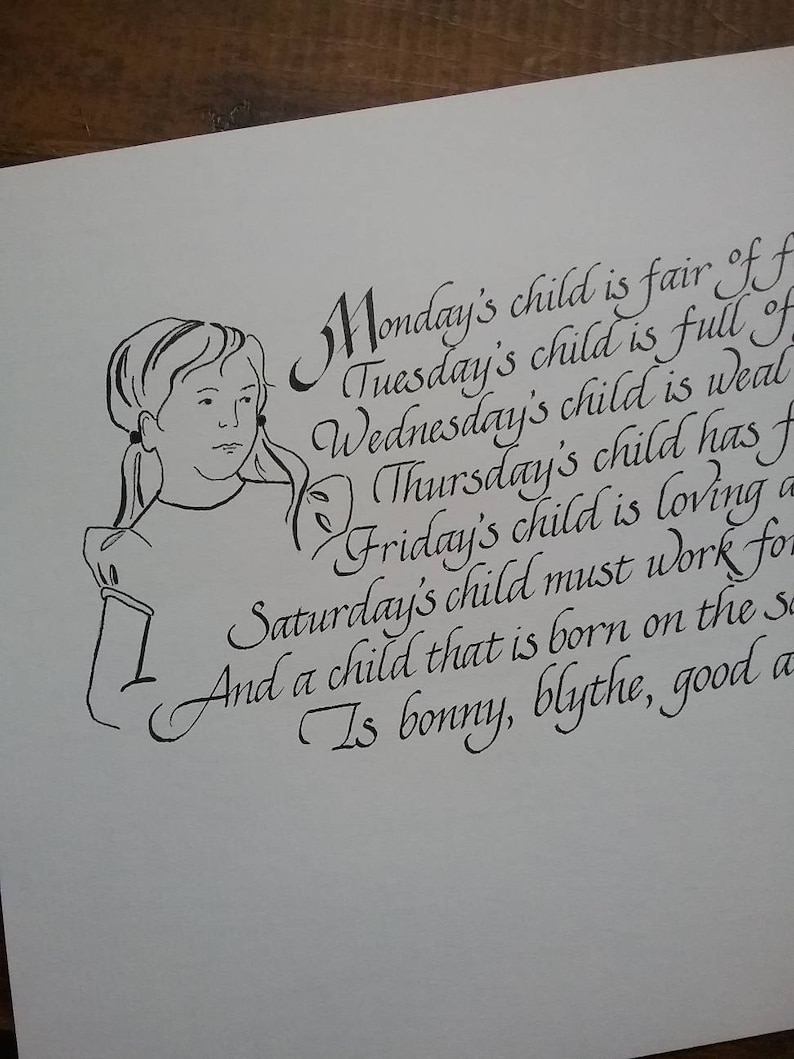 Monday's child is fair of f
Tuesday's child is full of
Wednesday's child is weal
Thursday's child has f
Friday's child is loving a
Saturday's child must work for
And a child that is born on the sa
Is bonny, blythe, good a